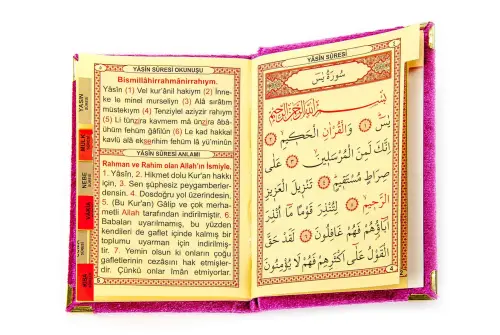 YÂSÎN SÛRESİ
سُورَةُ يٰسٓ
بِسْمِ اللّٰهِ الرَّحْمٰنِ الرَّحِيمِ
يٰسٓ ﴿١﴾ وَالْقُرْاٰنِ الْحَكِيمِ ﴿٢﴾
اِنَّكَ لَمِنَ الْمُرْسَلِينَ ﴿٣﴾ عَلٰى
صِرَاطٍ مُسْتَقِيمٍ ﴿٤﴾ تَنْزِيلَ الْعَزِيزِ
الرَّحِيمِ ﴿٥﴾ لِتُنْذِرَ قَوْمًا مَٓا اُنْذِرَ
اٰبَٓاؤُهُمْ فَهُمْ غَافِلُونَ ﴿٦﴾ لَقَدْ حَقَّ
الْقَوْلُ عَلٰٓى اَكْثَرِهِمْ فَهُمْ لَا يُؤْمِنُونَ
4
YÂSÎN SÛRESİ OKUNUŞU
Bismillâhirrahmânirrahıym.
Yâsîn (1) Vel kur'ânil hakiym (2) İnne-
ke le minel murseliyn (3) Alâ sırâtım
müstekıym (4) Tenziylel azizir rahıym
(5) Li tünzira kavmem mâ ünzira âbâ-
ühüm fehüm ğâfilûn (6) Le kad hakkal
kavlü alâ ekserihim fehüm lâ yü'minûn
YÂSÎN SÛRESİ ANLAMI
Rahman ve Rahim olan Allah'ın İsmiyle.
1. Yâsîn, 2. Hikmet dolu Kur'an hakkı
için, 3. Sen şüphesiz peygamberler-
densin. 4. Dosdoğru yol üzerindesin.
5. (Bu Kur'an) Gâlip ve çok merha-
metli Allah tarafından indirilmiştir. 6.
Babaları uyarılmamış, bu yüzden
kendileri de gaflet içinde kalmış bir
toplumu uyarman için indirilmiş-
tir. 7. Yemin olsun ki onların çoğu
gafletlerinin cezasını hak etmişler-
dir. Çünkü onlar îman etmiyorlar.
5
YASİN
MÜLK
NEBE